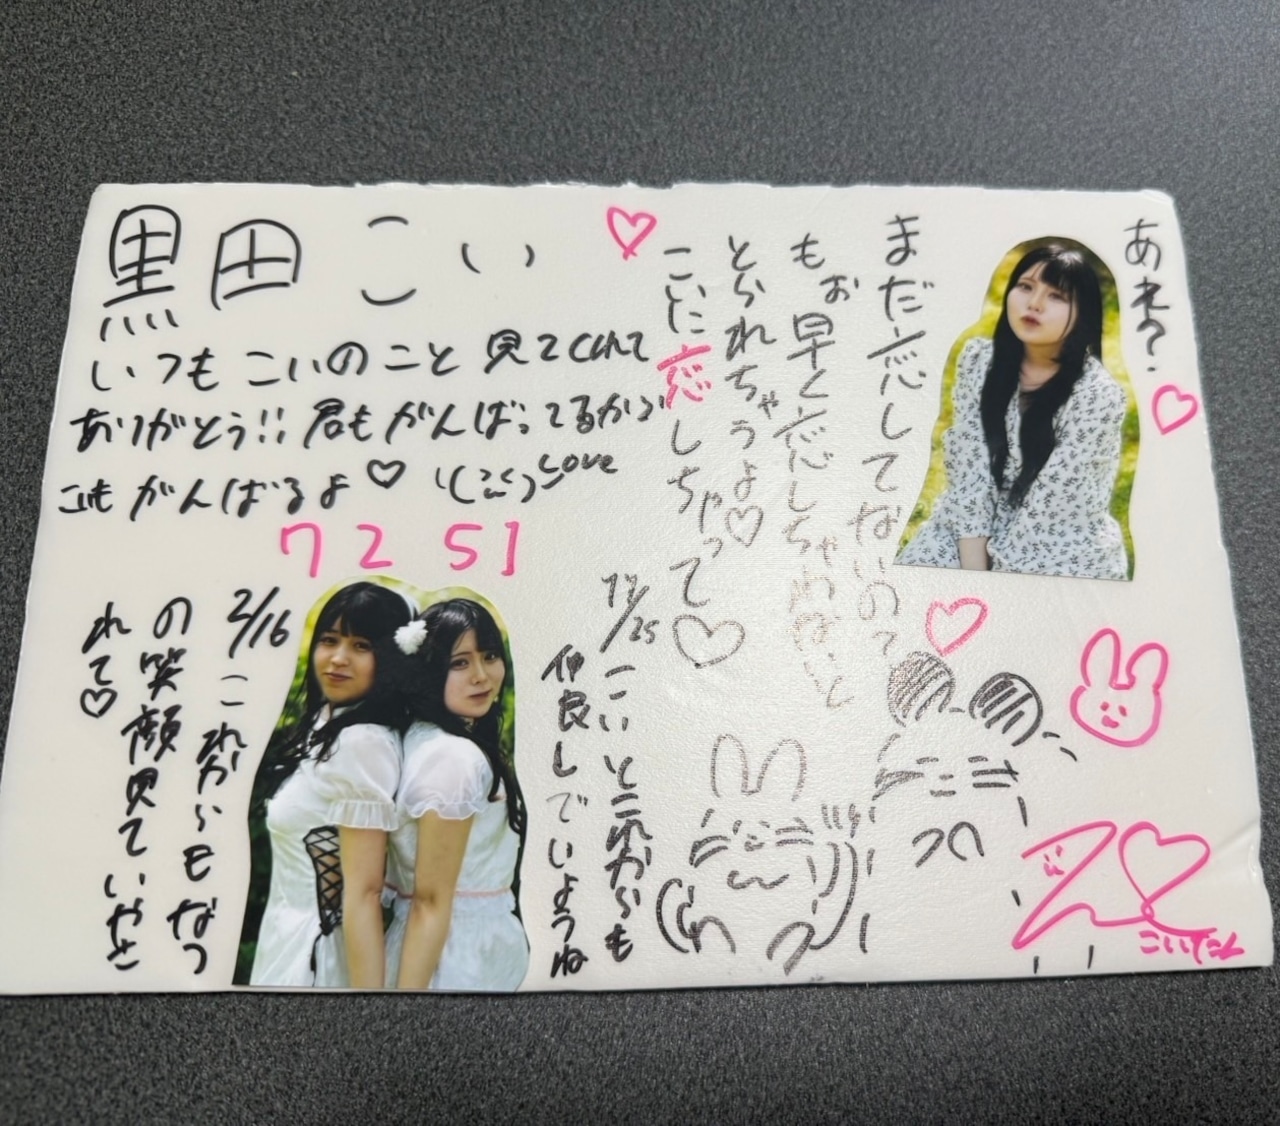 黒田こい
いつもこいのこと見てくれて
ありがとう!! 君もがんばってるから
こいもがんばるよ♡
Love
7251
あれ?
まだ恋してないの?
もお早く恋しちゃわないと
とられちゃうよ♡
こいに恋しちゃって♡
11/25 こいとこれからも
仲良しでいようね
2/16 これからもなつ
の笑顔見ていやさ
れて♡